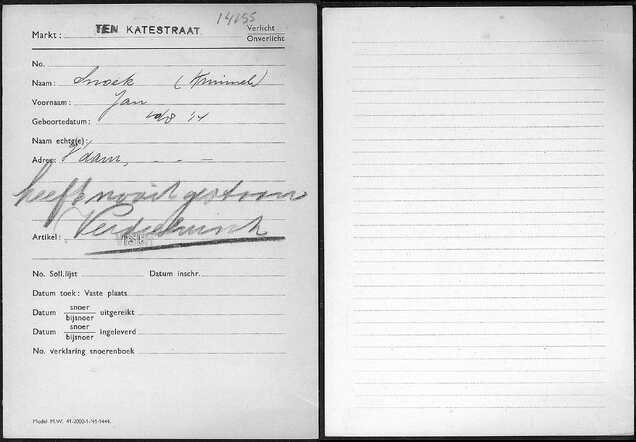 14655
Markt: TEN KATESTRAAT Verlicht
Onverlicht
No.
Naam: Snoek
Voornaam: Jan
Geboortedatum:
Naam echtg(e):
Adres: V'dam, - - -
heeft nooit gestaan
Artikel: VISCH
No. Soll.lijst Datum inschr.
Datum toek: Vaste plaats
Datum snoer bijsnoer uitgereikt
Datum snoer bijsnoer ingeleverd
No. verklaring snoerenboek
Model M.W. 41-2000-1-'41-1444.